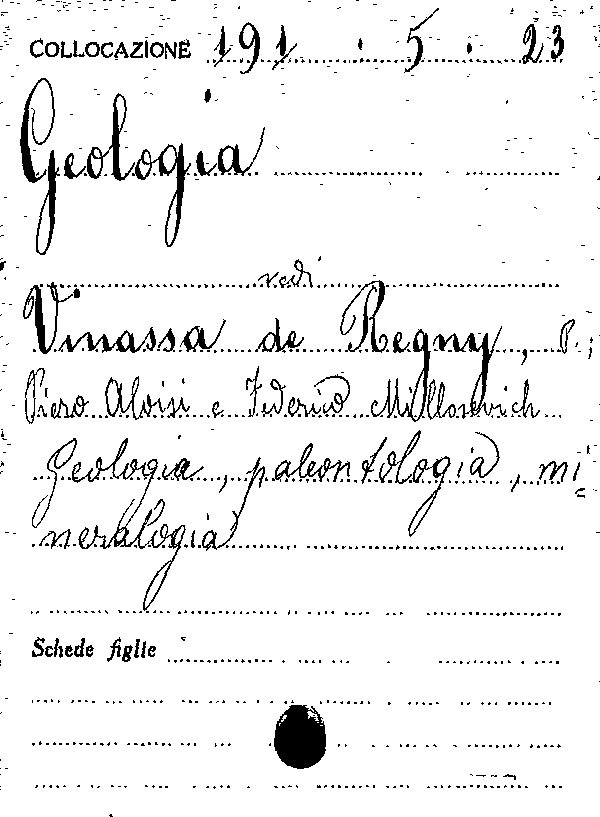 COLLOCAZIONE 191 . 5 . 23
Geologia
vedi
Vinassa de Regny, P.;
Piero Aloisi e Federico Millosevich
Geologia, paleontologia, mi=
neralogia
Schede figlie